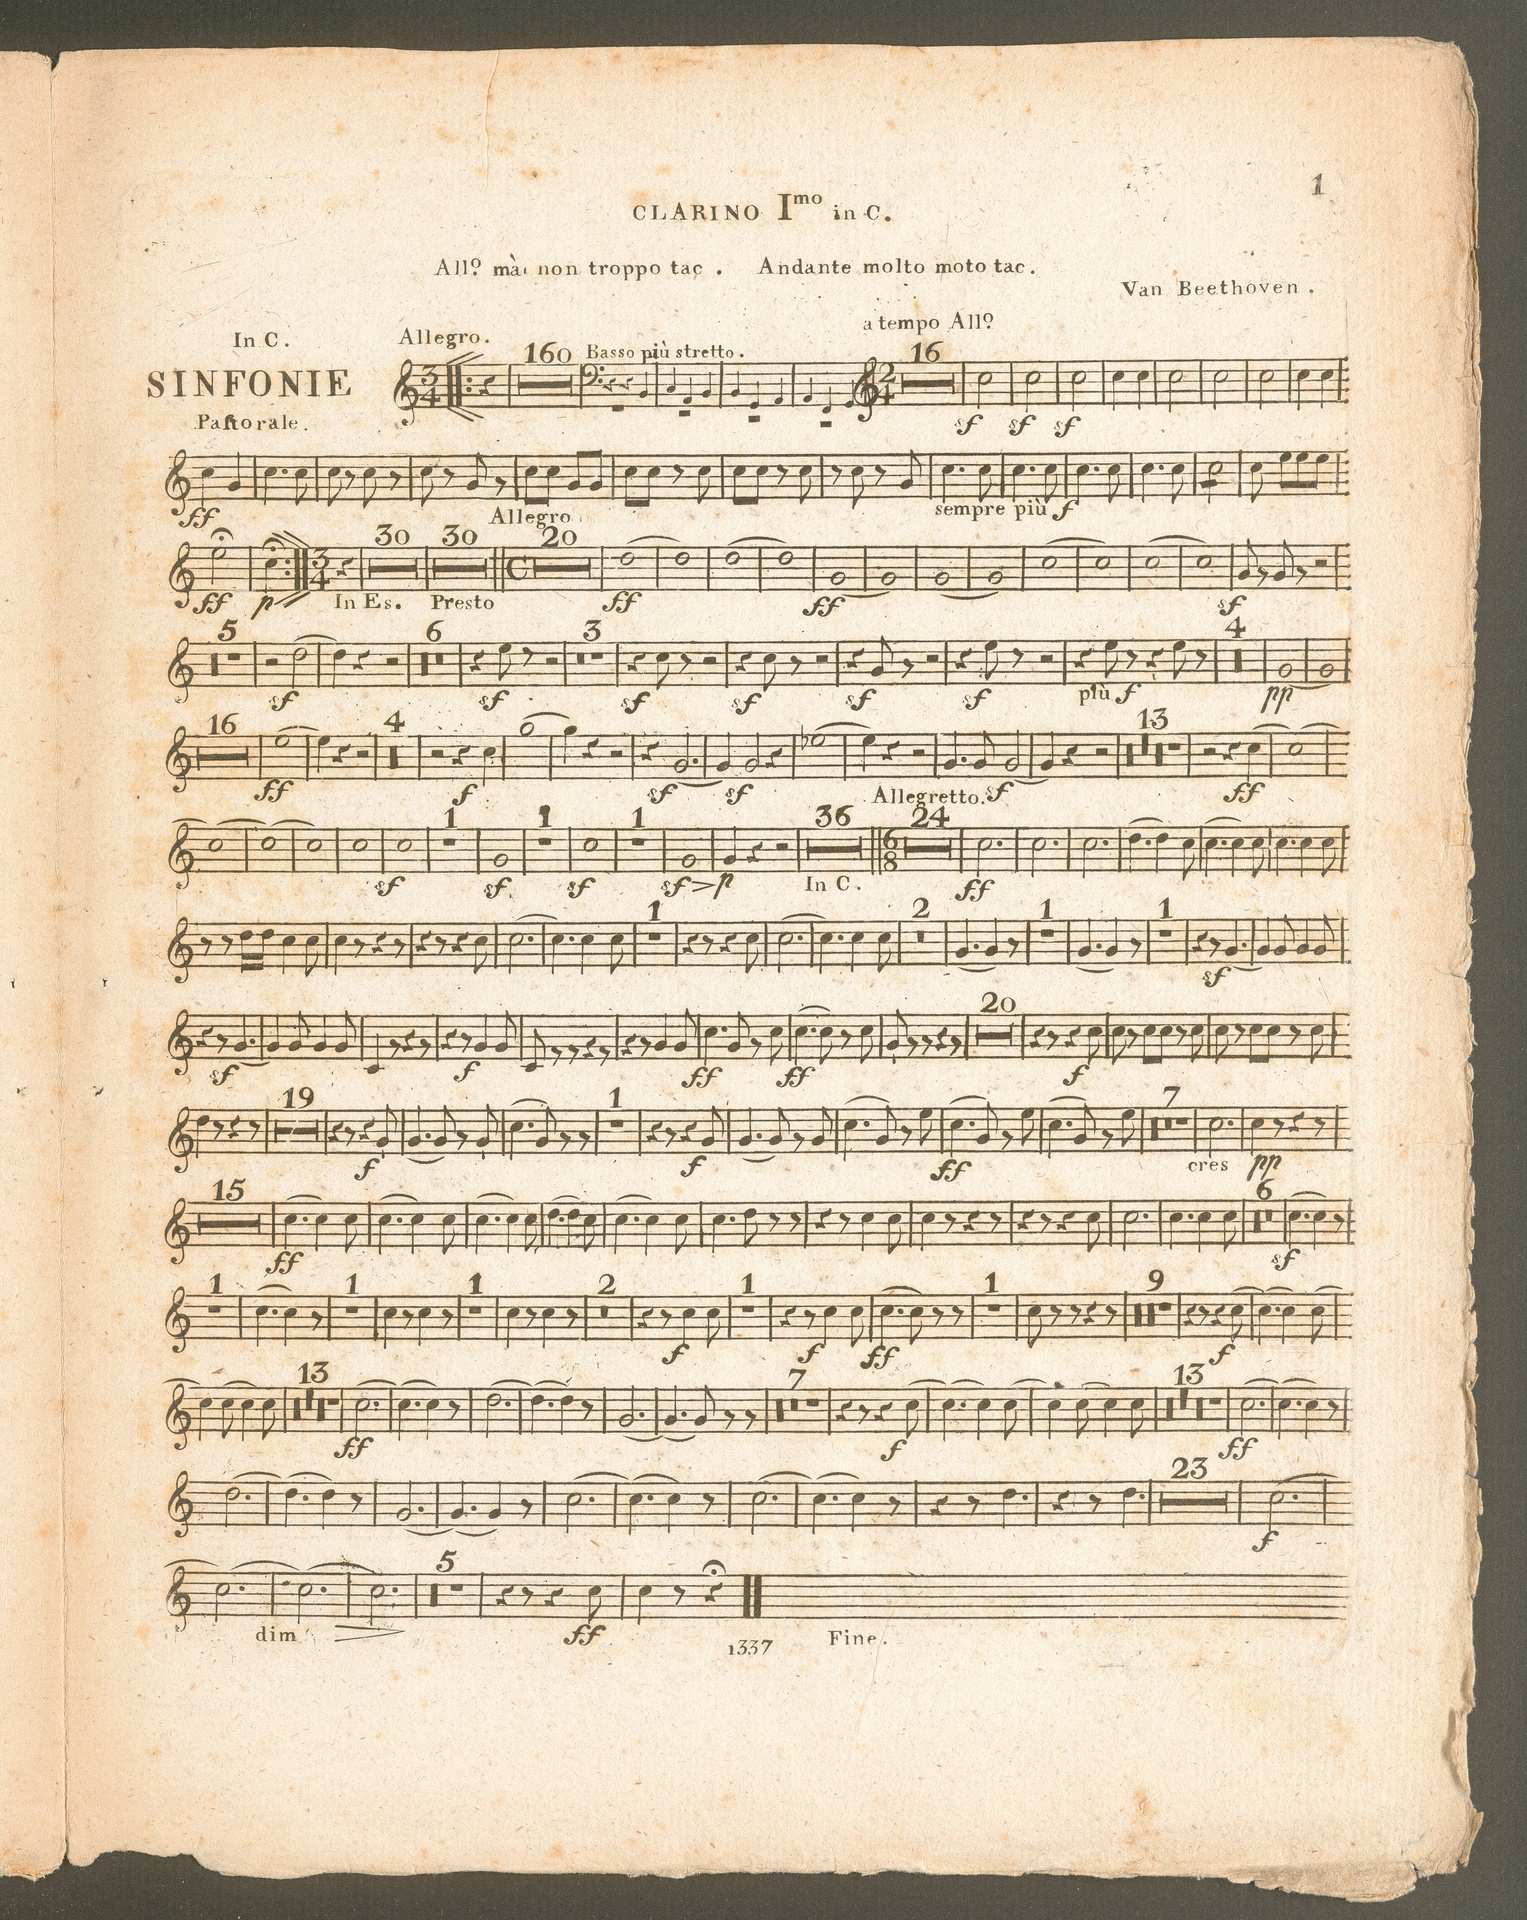 1
CLARINO Imo in C.
All? mà non troppo tac . Andante molto moto tac.
Van Beethoven .
a tempo All?
In C. Allegro.
160 Basso più stretto. 16
SINFONIE
Paſtorale.
sf sf sf
ff sempre più f
Allegro
30 30 20
ff p In Es. Presto ff ff sf
5 6 3 4
sf sf sf sf sf sf più f pp
16 4 13
ff f sf sf sf ff
Allegretto.
1 1 1 36 24
sf sf sf sf p In C. ff
1 2 1 1
sf
20
sf f ff ff f
19 1 7
f f ff cres pp
15 6
ff sf
1 1 1 2 1 1 9
f f ff f
13 7 13
ff f ff
23
f
5
dim ff
1337 Fine.